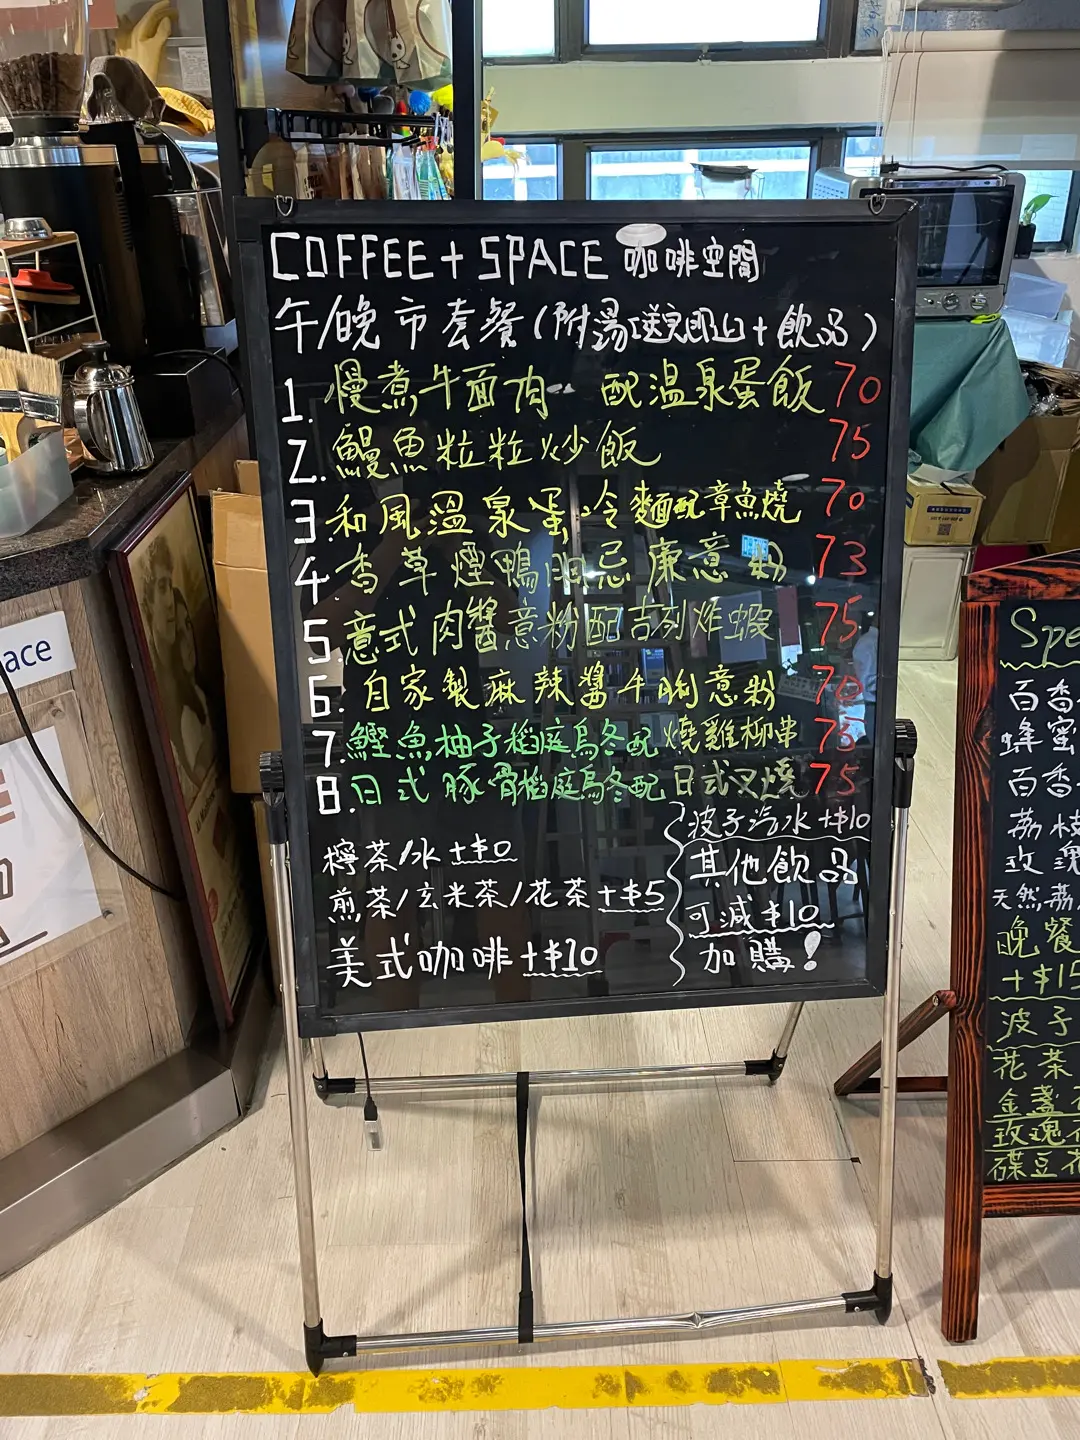 COFFEE + SPACE 咖啡空間
午/晚市套餐(附湯 + 飲品)
1. 慢煮牛面肉 配溫泉蛋飯 70
2. 鰻魚粒粒炒飯 75
3. 和風溫泉蛋冷麵配章魚燒 70
4. 香草煙鴨胸忌廉意粉 73
5. 意式肉醬意粉配吉列炸蝦 75
6. 自家製麻辣醬牛脷意粉 70
7. 鰹魚柚子稻庭烏冬配燒雞柳串 75
8. 日式豚骨稻庭烏冬配日式叉燒 75
檸茶/水 +$0
煎茶/玄米茶/花茶 +$5
美式咖啡 +$10
波子汽水 +$10
其他飲品
可減$10
加購!
ace
Spe
百香
蜂蜜
百香
荔枝
玫瑰
天然荔
晚餐
+$15
波子
花茶
金盞
玫瑰
碟豆花